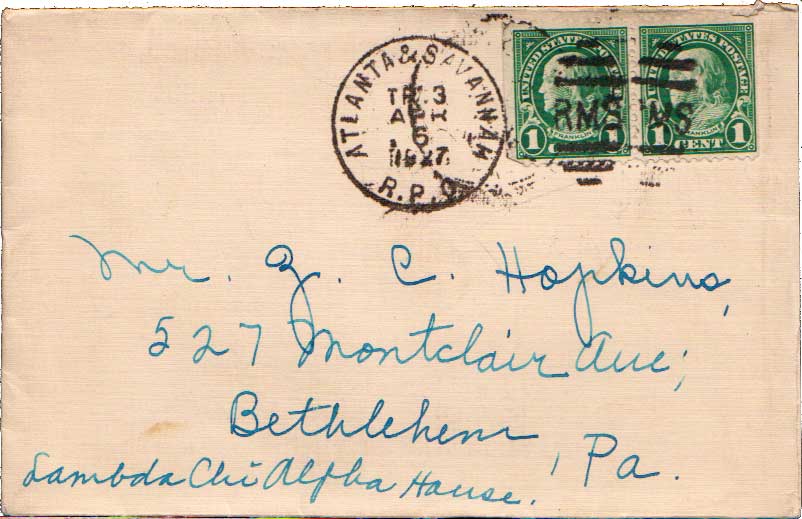 ATLANTA & SAVANNAH
TR. 3
APR
6
1927
R.P.O.
UNITED STATES POSTAGE
FRANKLIN
1
1
RMS
UNITED STATES POSTAGE
FRANKLIN
1 CENT 1
RMS
Mr. G. C. Hopkins,
527 Montclair Ave;
Bethlehem, Pa.
Lambda Chi Alpha House.